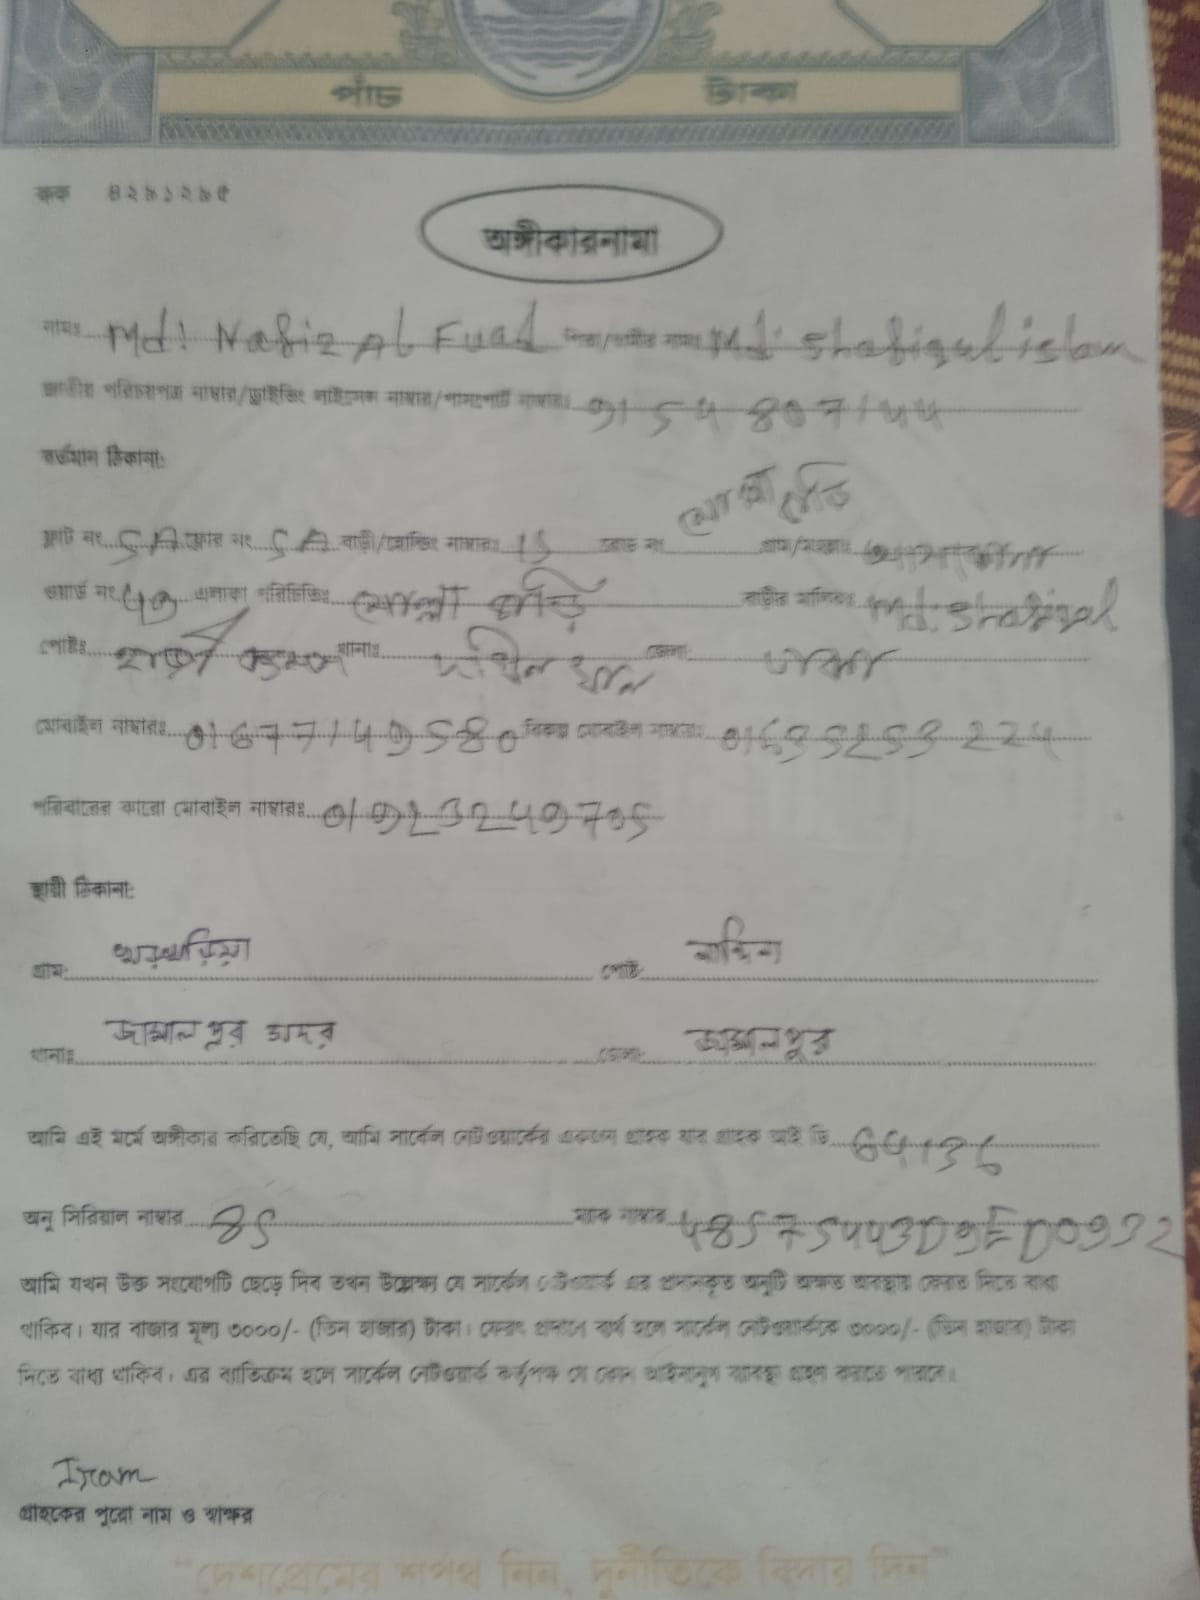 পাঁচ টাকা
কক ৪২৯১২৯৫
অঙ্গীকারনামা
নামঃ Md: Nafiz Al Fuad পিতা/স্বামীর নামঃ Md: Shafiqul islam
জাতীয় পরিচয়পত্র নাম্বার/ড্রাইভিং লাইসেন্স নাম্বার/পাসপোর্ট নাম্বারঃ 9154807144
বর্তমান ঠিকানা:
মোল্লা বাড়ি
ফ্লাট নং 5A ফ্লোর নং 5A বাড়ী/হোল্ডিং নাম্বারঃ 15 রোড নং গ্রাম/মহল্লাঃ
ওয়ার্ড নং এলাকা পরিচিতিঃ মোল্লা বাড়ি বাড়ীর মালিকঃ Md: Shafiqul
পোষ্টঃ থানাঃ দক্ষিন খান জেলা: ঢাকা
মোবাইল নাম্বারঃ 01677149580 বিকল্প মোবাইল নাম্বারঃ 01635253224
পরিবারের কারো মোবাইল নাম্বারঃ 01923249705
স্থায়ী ঠিকানা:
গ্রাম: খড়খড়িয়া পোষ্ট: নান্দিনা
থানাঃ জামালপুর সদর জেলা: জামালপুর
আমি এই মর্মে অঙ্গীকার করিতেছি যে, আমি সার্কেল নেটওয়ার্কের একজন গ্রাহক যার গ্রাহক আই ডি 64136
অনু সিরিয়াল নাম্বার 85 ম্যাক নাম্বার 48575443D9ED0932
আমি যখন উক্ত সংযোগটি ছেড়ে দিব তখন উল্লেক্ষ্য যে সার্কেল নেটওয়ার্ক এর প্রদানকৃত অনুটি অক্ষত অবস্থায় ফেরত দিতে বাধ্য
থাকিব। যার বাজার মূল্য ৩০০০/- (তিন হাজার) টাকা। ফেরৎ প্রদানে ব্যর্থ হলে সার্কেল নেটওয়ার্ককে ৩০০০/- (তিন হাজার) টাকা
দিতে বাধ্য থাকিব। এর ব্যতিক্রম হলে সার্কেল নেটওয়ার্ক কর্তৃপক্ষ যে কোন আইনানুগ ব্যবস্থা গ্রহণ করতে পারবে।
গ্রাহকের পুরো নাম ও স্বাক্ষর
“দেশপ্রেমের শপথ নিন, দুর্নীতিকে বিদায় দিন”